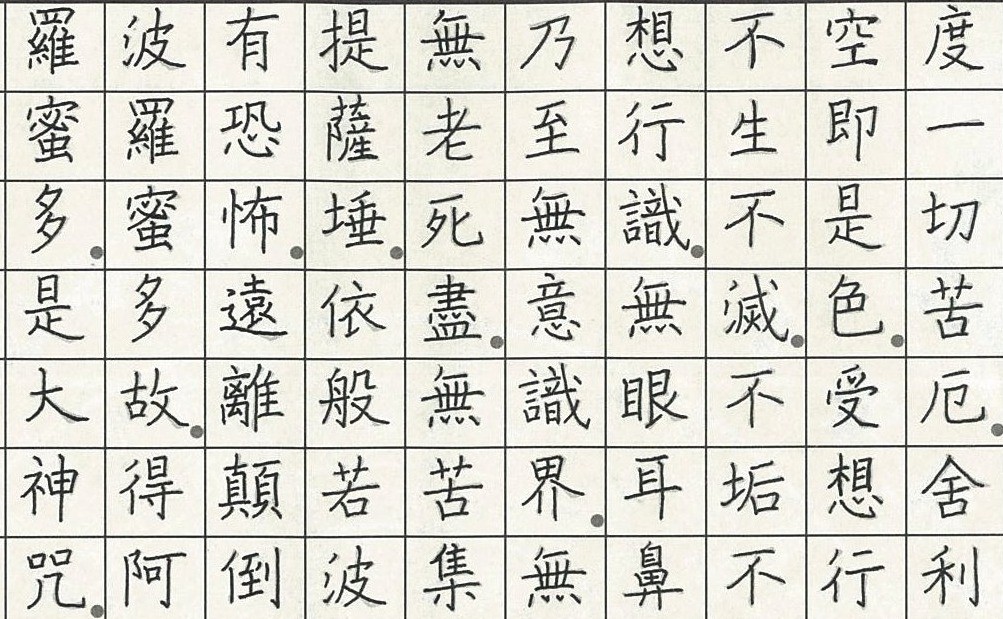 度一切苦厄舍利
空即是色受想行
不生不滅不垢不
想行識無眼耳鼻
乃至無意識界無
無老死盡無苦集
提薩埵依般若波
有恐怖遠離顛倒
波羅蜜多故得阿
羅蜜多是大神咒